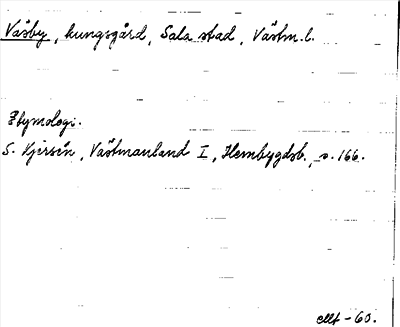 Väsby, kungsgård, Sala stad, Västm.l.
Etymologi.
S. Kjersén, Västmanland I, Hembygdsb., s. 166.
-60.